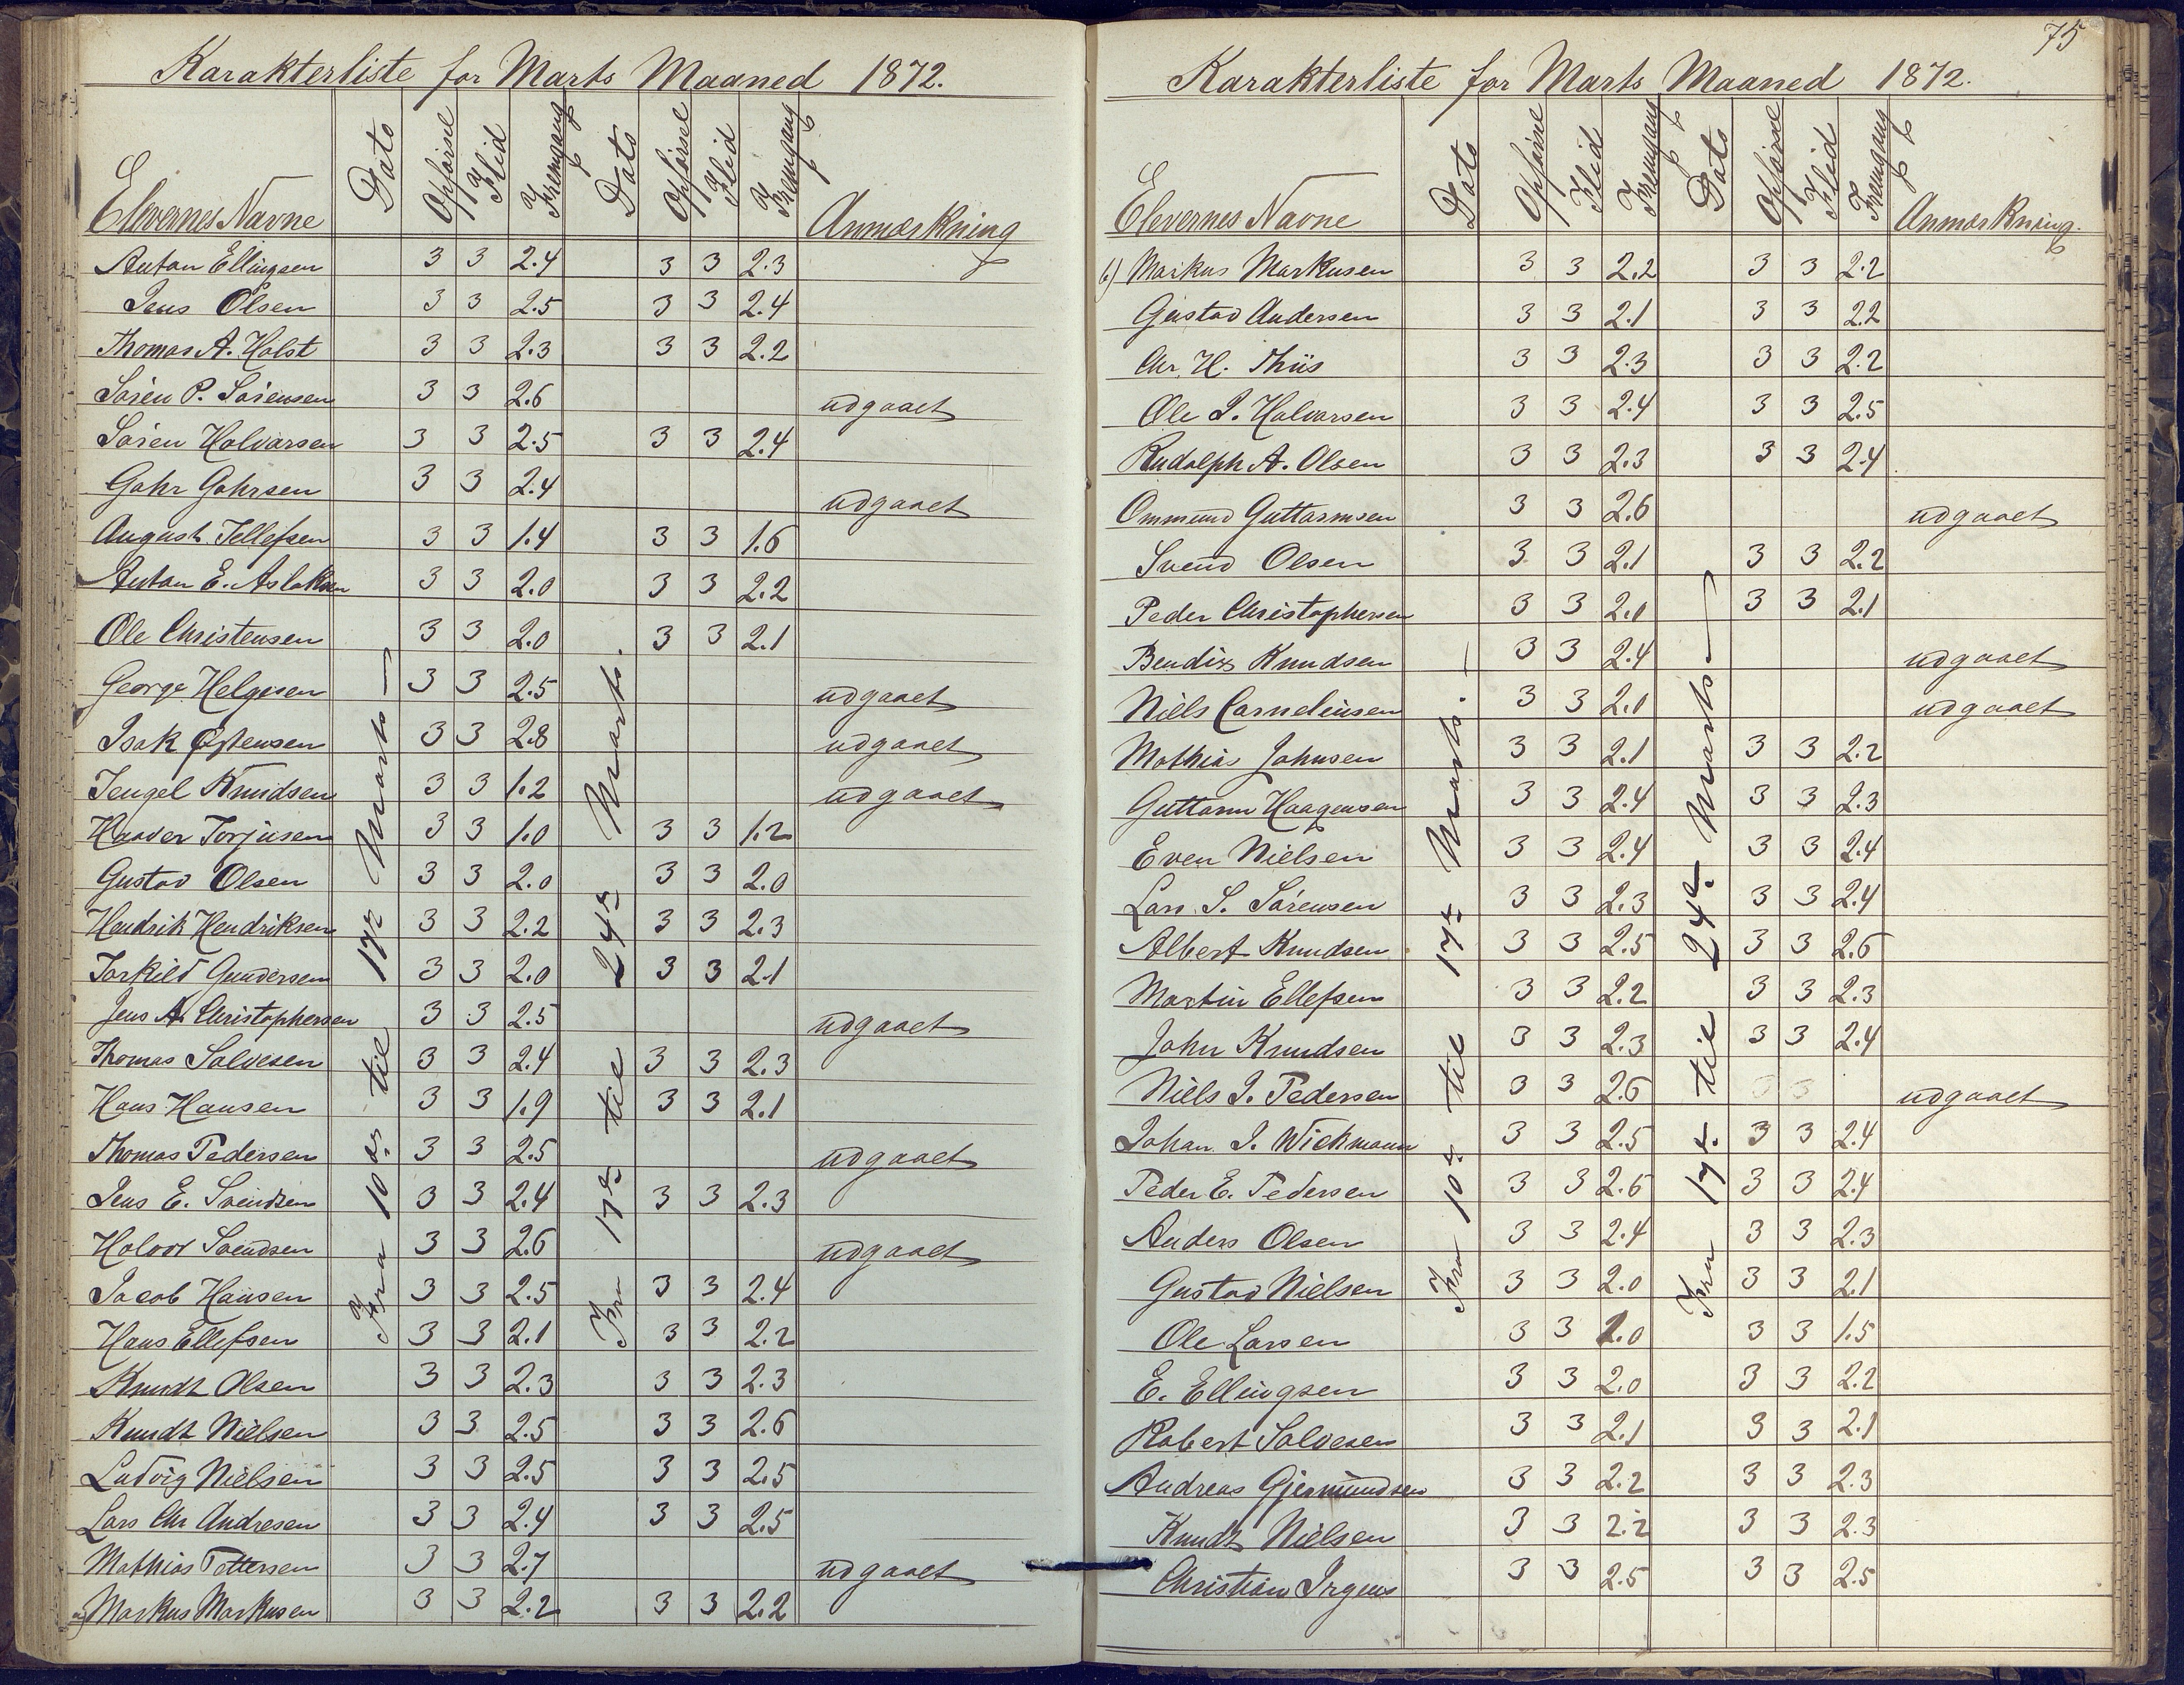 Karakterliste for Marts Maaned 1872.
Elevernes Navne Dato Opførsel Flid Fremgang Dato Opførsel Flid Fremgang Anmærkning
Fra 10de til 17de Marts
Fra 17de til 24de Marts.
Anton Ellingsen 3 3 2.4 3 3 2.3
Jens Olsen 3 3 2.5 3 3 2.4
Thomas A. Holst 3 3 2.3 3 3 2.2
Sören P. Sörensen 3 3 2.6 udgaaet
Sören Halvorsen 3 3 2.5 3 3 2.4
Gahr Gahrsen 3 3 2.4 udgaaet
August Tellefsen 3 3 1.4 3 3 1.6
Anton E. Aslaksen 3 3 2.0 3 3 2.2
Ole Christensen 3 3 2.0 3 3 2.1
George Helgesen 3 3 2.5 udgaaet
Isak Østensen 3 3 2.8 udgaaet
Tengel Knudsen 3 3 1.2 udgaaet
Haaver Torjusen 3 3 1.0 3 3 1.2
Gustav Olsen 3 3 2.0 3 3 2.0
Hendrik Hendriksen 3 3 2.2 3 3 2.3
Torkild Gundersen 3 3 2.0 3 3 2.1
Jens A. Christophersen 3 3 2.5 udgaaet
Thomas Salvesen 3 3 2.4 3 3 2.3
Hans Hansen 3 3 1.9 3 3 2.1
Thomas Pedersen 3 3 2.5 udgaaet
Jens E. Svendsen 3 3 2.4 3 3 2.3
Holvor Svendsen 3 3 2.6 udgaaet
Jacob Hansen 3 3 2.5 3 3 2.4
Hans Ellefsen 3 3 2.1 3 3 2.2
Knudt Olsen 3 3 2.3 3 3 2.3
Knudt Nielsen 3 3 2.5 3 3 2.6
Ludvig Nielsen 3 3 2.5 3 3 2.5
Lars Chr Andresen 3 3 2.4 3 3 2.5
Mathias Pettersen 3 3 2.7 udgaaet
a) Markus Markusen 3 3 2.2 3 3 2.2
75
Karakterliste for Marts Maaned 1872.
Elevernes Navne Dato Opførsel Flid Fremgang Dato Opførsel Flid Fremgang Anmærkning.
Fra 10de til 17de Marts.
Fra 17de til 24de Marts
b) Markus Markusen 3 3 2.2 3 3 2.2
Gustav Andersen 3 3 2.1 3 3 2.2
Chr. H. Thiis 3 3 2.3 3 3 2.2
Ole J. Halvorsen 3 3 2.4 3 3 2.5
Rudolph A. Olsen 3 3 2.3 3 3 2.4
Ommund Guttormsen 3 3 2.6 udgaaet
Svend Olsen 3 3 2.1 3 3 2.2
Peder Christophersen 3 3 2.0 3 3 2.1
Bendix Knudsen 3 3 2.4 udgaaet
Niels Corneliusen 3 3 2.0 udgaaet
Mathias Johnsen 3 3 2.1 3 3 2.2
Guttorm Haagensen 3 3 2.4 3 3 2.3
Even Nielsen 3 3 2.4 3 3 2.4
Lars. S. Sörensen 3 3 2.3 3 3 2.4
Albert Knudsen 3 3 2.5 3 3 2.6
Martin Ellefsen 3 3 2.2 3 3 2.3
John Knudsen 3 3 2.3 3 3 2.4
Niels J. Pedersen 3 3 2.6 3 3 udgaaet
Johan J. Wickmann 3 3 2.5 3 3 2.4
Peder E. Pedersen 3 3 2.6 3 3 2.4
Anders Olsen 3 3 2.4 3 3 2.3
Gustav Nielsen 3 3 2.0 3 3 2.1
Ole Larsen 3 3 1.0 3 3 1.5
E. Ellingsen 3 3 2.0 3 3 2.2
Robert Salvesen 3 3 2.1 3 3 2.1
Andreas Gjermundsen 3 3 2.2 3 3 2.3
Knudt Nielsen 3 3 2.2 3 3 2.3
Christian Irgens 3 3 2.5 3 3 2.5